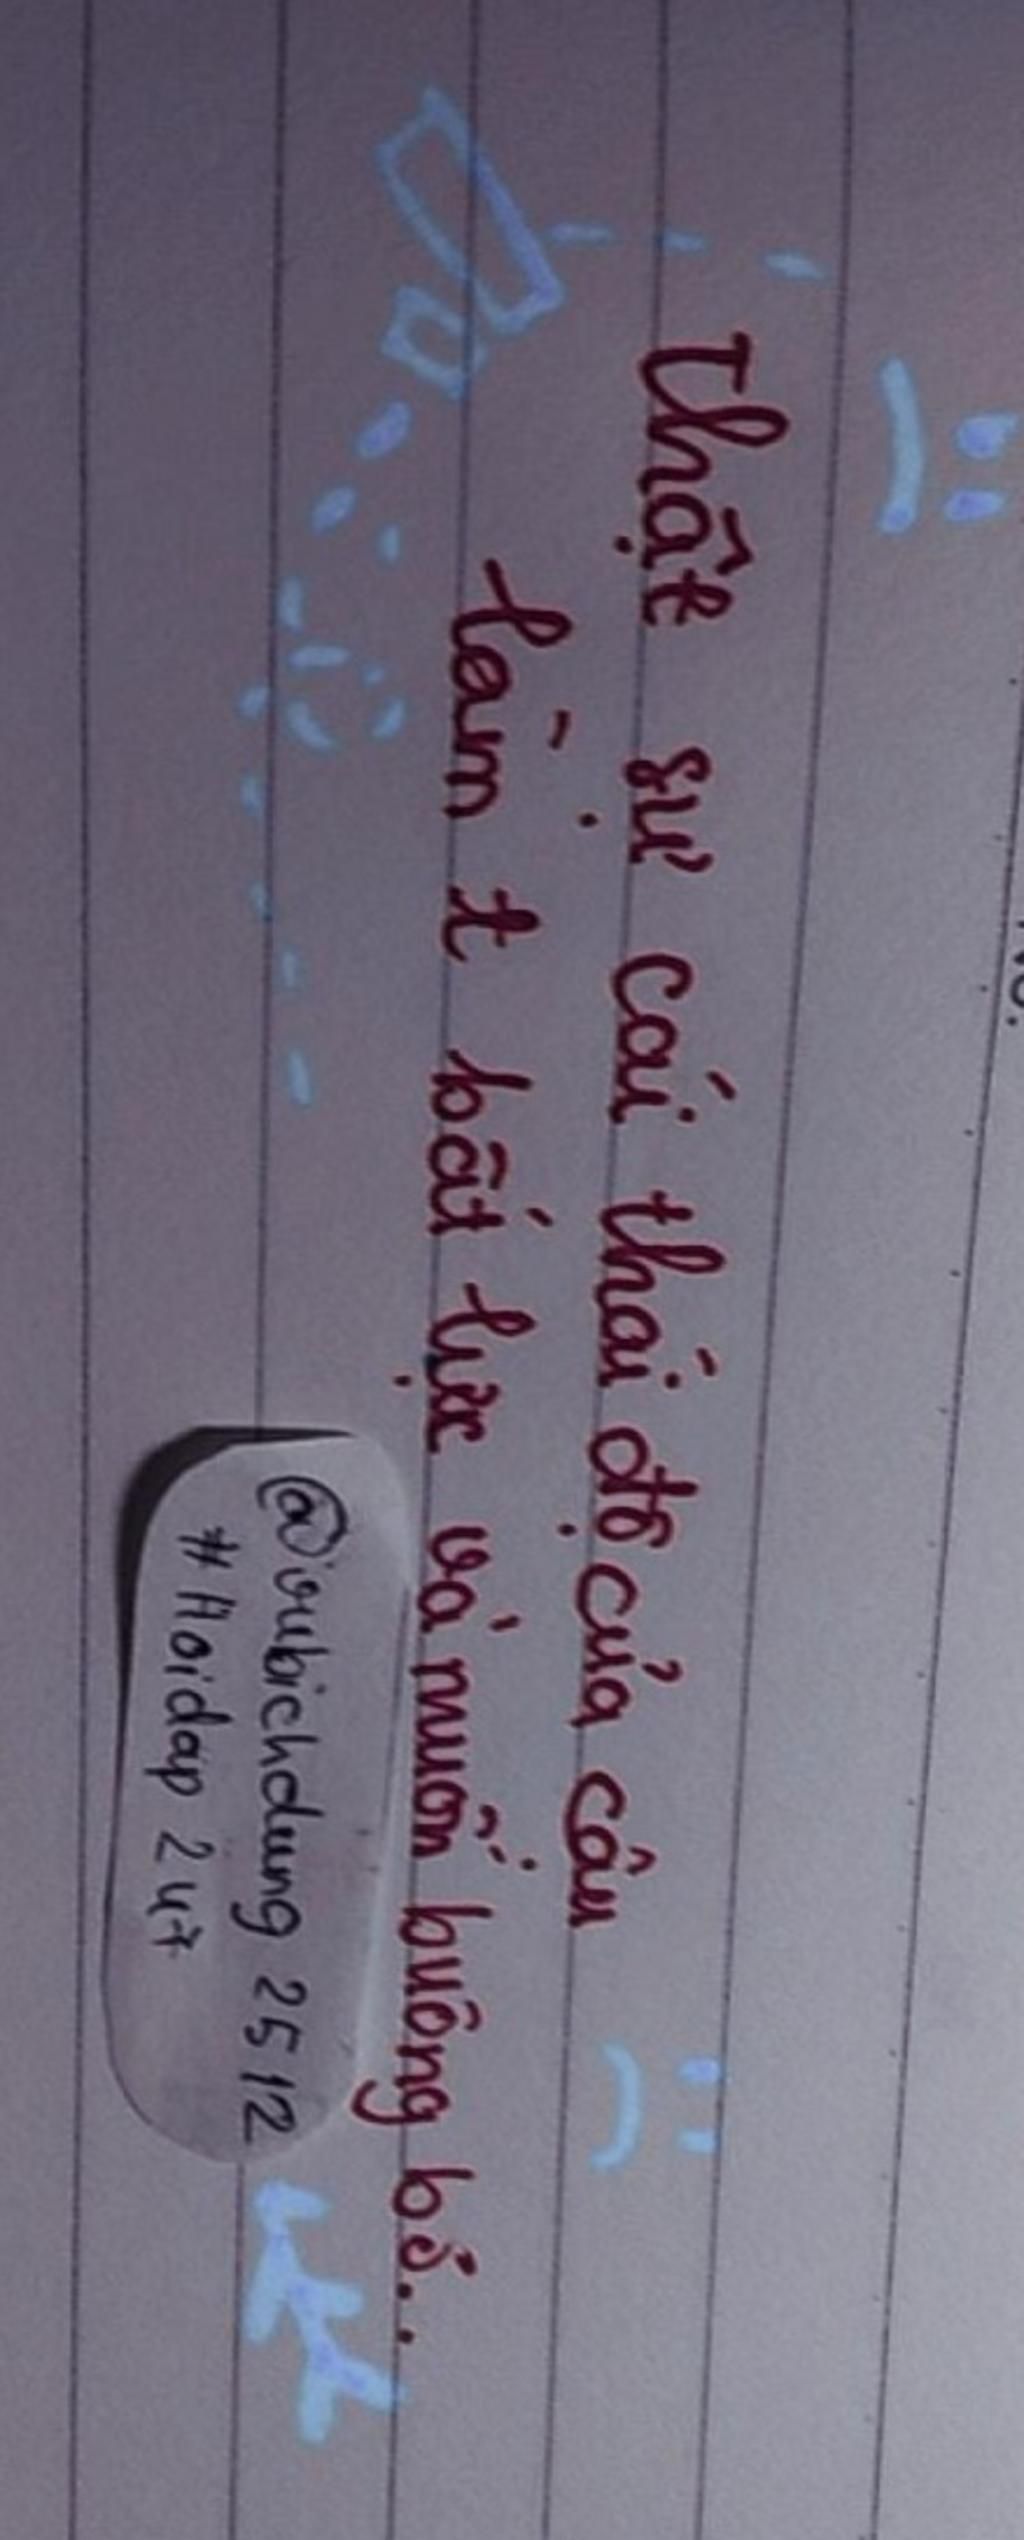 Thật sự cái thái độ của cậu
làm t bất lực và muốn buông bỏ...
@vubichdung 2512
# Hoidap 247